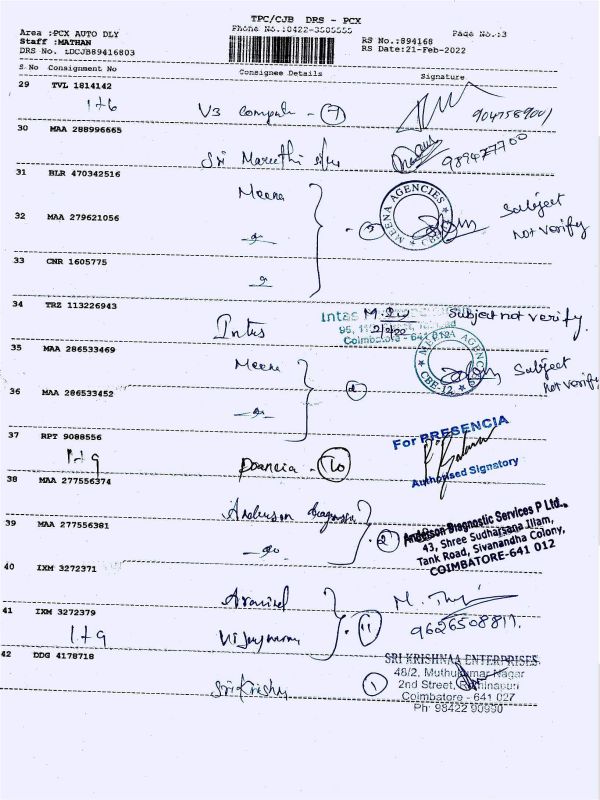 TPC/CJB DRS - PCX
Area :PCX AUTO DLY Phone No.:0422-3505555 Page No.:3
Staff :MATHAN RS No.:894168
DRS No. :DCJB89416803 RS Date:21-Feb-2022
S No Consignment No Consignee Details Signature
29 TVL 1814142
1+6 V3 Compute - 7 9047589001
30 MAA 288996665
Sri Maruthi 989477700
31 BLR 470342516
Meena MEENA AGENCIES Subject
32 MAA 279621056 not verify
33 CNR 1605775
34 TRZ 113226943
Intas Intas Subject not verify.
Coimbatore - 641 012
35 MAA 286533469
Meena MEENA AGENCIES CBE-12 Subject
36 MAA 286533452 not verify
37 RPT 9088556 For PRESENCIA
1+9 10
Authorised Signatory
38 MAA 277556374
Anderson diagnostic Anderson Diagnostic Services P Ltd.,
39 MAA 277556381 43, Shree Sudharsana Illam,
2 Tank Road, Sivanandha Colony,
COIMBATORE-641 012
40 IXM 3272371
Aravind
41 IXM 3272379
1+9 Vijaykumar 11 9626508811.
42 DDG 4178718 SRI KRISHNAA ENTERPRISES
48/2, Muthukumar Nagar
Sri Krishna 1 2nd Street,
Coimbatore - 641 027
Ph: 98422 90990